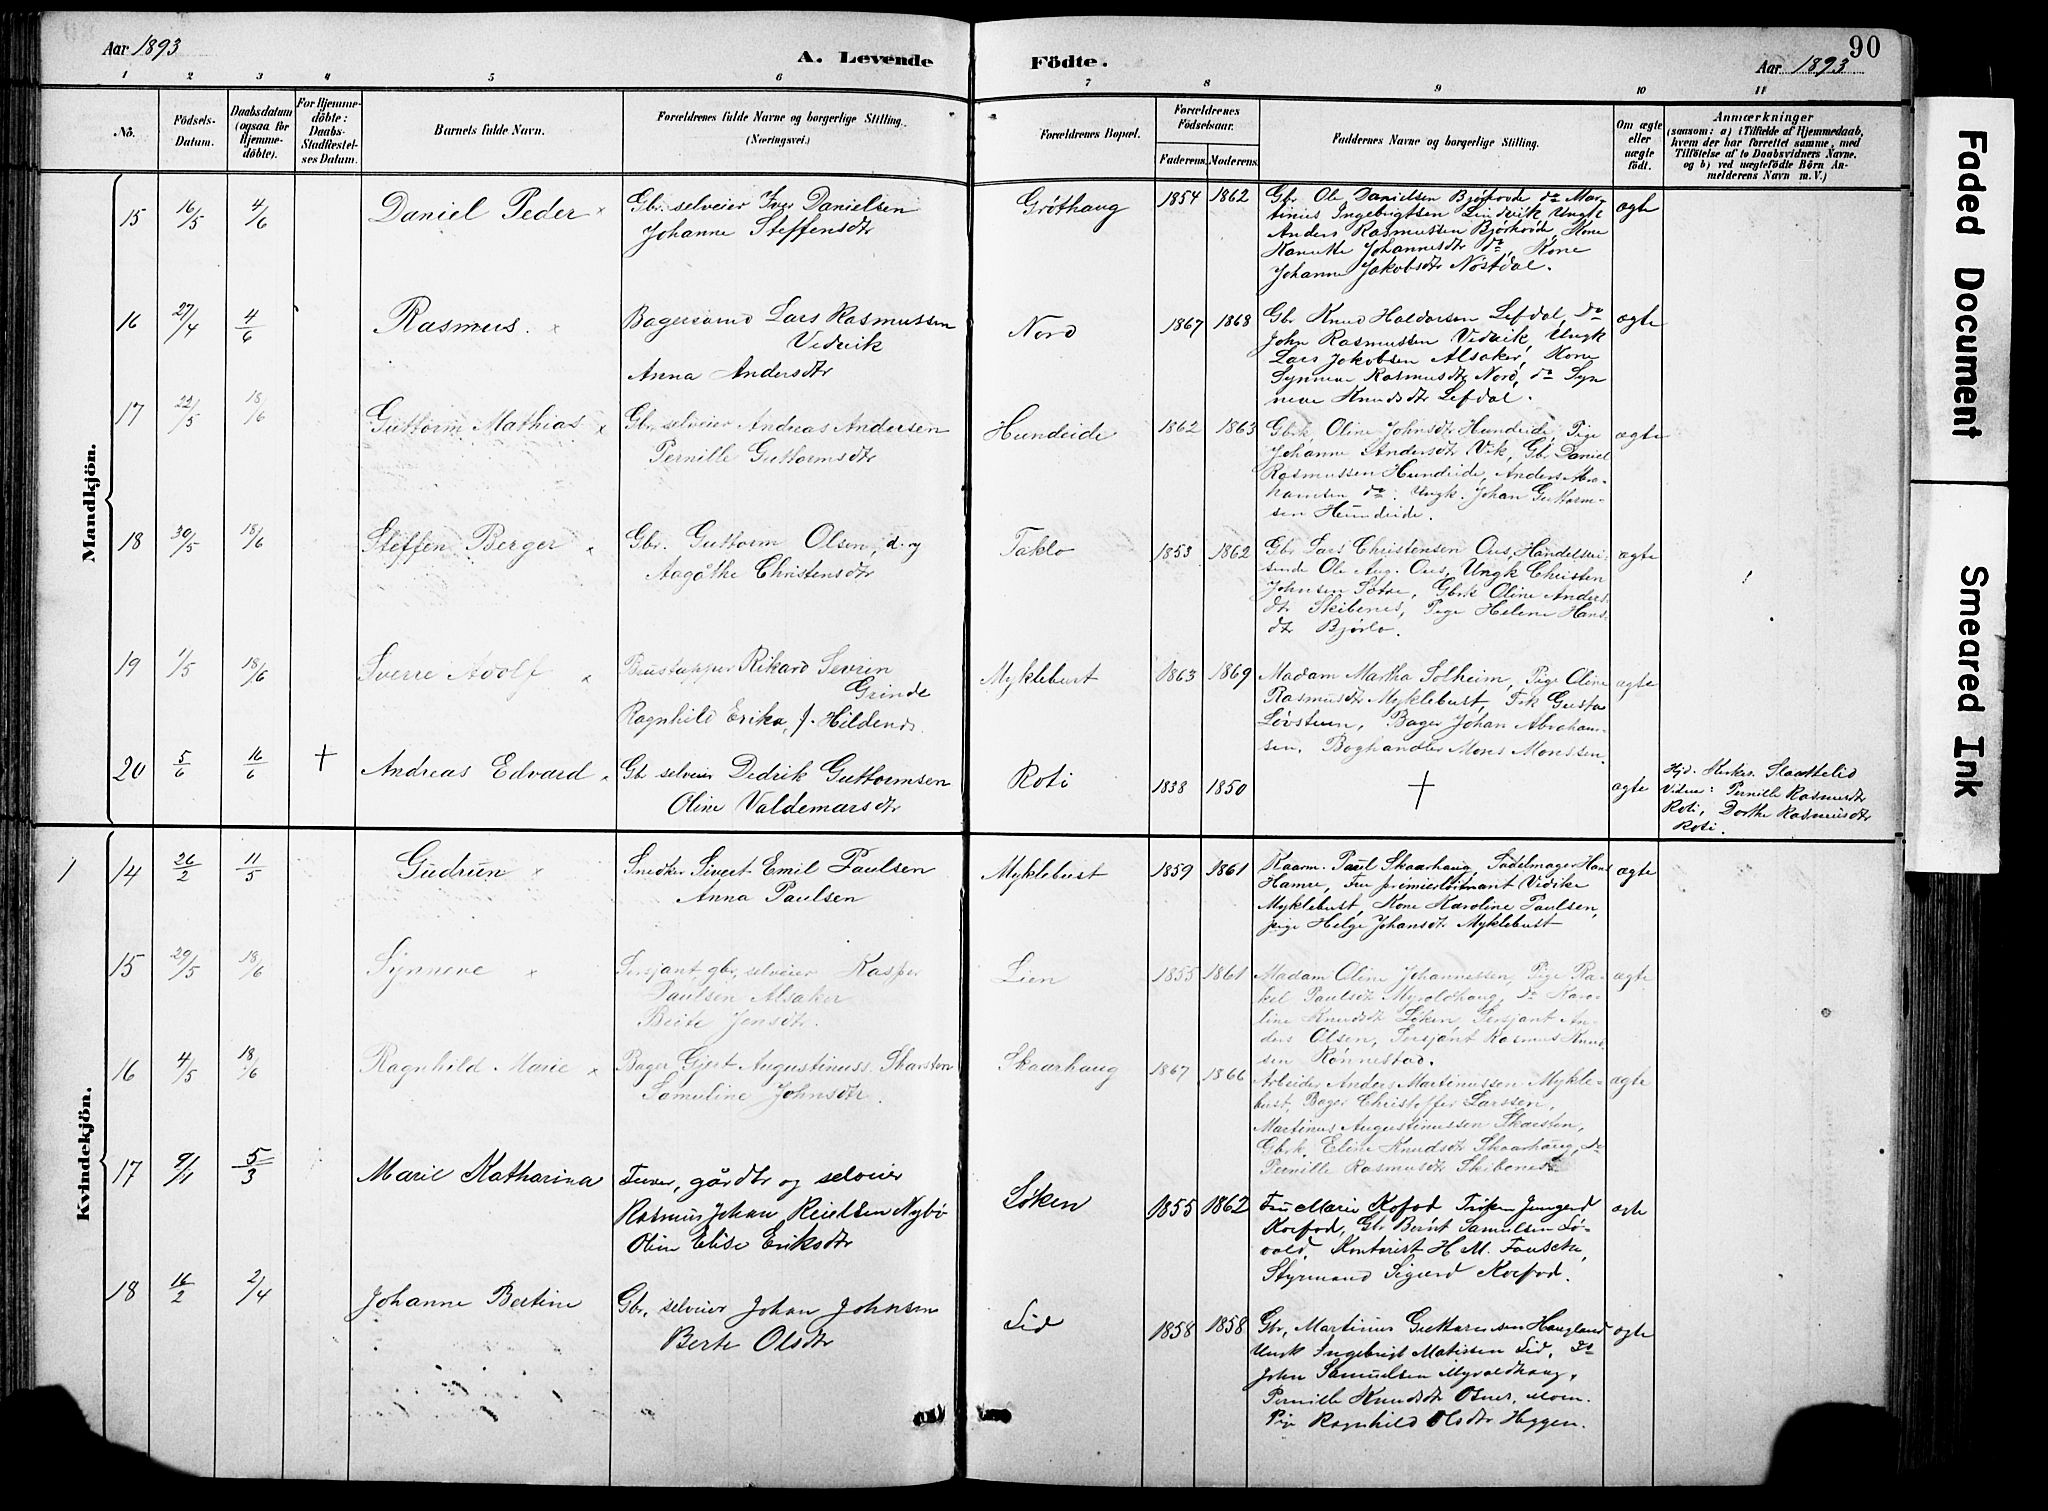 Aar 1893
A. Levende
Födte.
Aar 1893
90
1 2 3 4 5 6 7 8 9 10 11
No.
Födsels-
Datum.
Daabsdatum
(ogsaa for
Hjemme-
döbte).
For Hjemme-
döbte:
Daabs-
Stadfæstel-
ses Datum.
Barnets fulde Navn.
Forældrenes fulde Navne og borgerlige Stilling.
(Næringsvei.)
Forældrenes Bopæl.
Forældrenes
Födselsaar.
Faderens. Moderens.
Faddernes Navne og borgerlige Stilling.
Om ægte
eller
uægte
födt.
Anmærkninger
(saasom: a) i Tilfælde af Hjemmedaab,
hvem der har forrettet samme, med
Tilföielse af to Daabsvidners Navne,
og b) ved uægtefödte Börn An-
melderens Navn m. V.)
Mandkjön.
15 16/5 4/6 Daniel Peder
Gbr. selveier Iver Danielsen
Johanne Steffensdtr
Grøthaug 1854 1862
Gbr Ole Danielsen Bjørhovde do Mar-
tinus Ingebrigtsen Lindvik Ungk
Anders Rasmussen Kone
Johannesdtr do, Kone
Johanne Jakobsdtr Nøstdal.
ægte
16 27/4 4/6 Rasmus.
Bagersvend Lars Rasmussen
Vedvik
Anna Andersdtr
Nord 1867 1868
Gbr Knud Haldorsen Lefdal, do
John Rasmussen Vedvik, Ungk
Lars Jakobsen Alsaker, Kone
Synneve Rasmusdtr Nord, do Syn
neve Knudsdtr Lefdal.
ægte
17 22/5 18/6 Guttorm Mathias
Gbr. selveier Andreas Andersen
Pernille Guttormsdtr
Hundeide 1862 1863
Gbrk. Oline Johnsdtr Hundeide, Pige
Johanne Andersdtr Vik, Gbr Daniel
Rasmussen Hundeide, Anders Abra-
hamsen do. Ungk. Johan Guttorm-
sen Hundeide.
ægte
18 30/5 18/6 Steffen Berger
Gbr. Guttorm Olsen, d. y
Aagåthe Christensdtr
Taklo 1853 1862
Gbr Lars Christensen Ous, Handelsrei-
sende Ole Aug. Ous, Ungk Christen
Johnsen Sætre, Gbrk Oline Anders
dtr Skibenes, Pige Helene Hans
dtr Bjørlo.
ægte
19 1/5 18/6 Sverre Adolf
Brustapper Rikard Sevrin
Grinde
Ragnhild Erika, f. Hildend.
Myklebust 1863 1869
Madam Martha Solheim, Pige Oline
Rasmusdtr Myklebust, Frk Gusta
Løvstuen, Bager Johan Abraham-
sen, Boghandler Mons Monssen.
ægte
20 5/6 16/6 + Andreas Edvard
Gbr selveier Didrik Guttormsen
Oline Valdemarsdtr
Roti 1838 1850
+
ægte
Hjd. Staattelid
Vidner: Pernille Rasmusdtr
Roti, Dorthe Rasmusdtr
Roti.
Kvindekjön.
1 14 26/2 11/5 Gudrun
Snedker Sivert Emil Paulsen
Anna Paulsen
Myklebust 1859 1861
Paul Skaarhaug, Sadelmager Hans
Hamre, Fru premierløitnant Vidike
Myklebust, Kone Karoline Paulsen,
pige Helge Johansdtr Myklebust
ægte
15 29/5 18/6 Synneve
Sersjant, gbr, selveier Kasper
Paulsen Alsaker
Berte Jensdtr.
Lien 1855 1861
Madam Oline Johannessen, Pige Ra-
kel Paulsdtr Myroldhaug, do Karo-
line Knudsdtr Løken, Sersjant An-
ders Olsen, Sersjant Rasmus Knud-
sen Rønnestad.
ægte
16 4/5 18/6 Ragnhild Marie
Bager Gjert Augustinuss. Skarsten
Samuline Johnsdtr.
Skaarhaug 1867 1866
Arbeider Anders Martinussen Mykle-
bust, Bager Christoffer Larssen,
Martinus Augustinussen Skarsten,
Gbrk. Eline Knudsdtr Skaarhaug, do
Pernille Rasmusdtr Skibenes
ægte
17 9/1 5/3 Marie Katharina
gårdbr og selveier
Rasmus Johan Reielsen Nybö
Oline Elise Eriksdtr
Løken 1855 1862
Fru Marie Kofod Frøken Jungerd
Koefod, Gbr Bernt Samulsen Lö-
vold, Kontorist H M. Fausche,
Styrmand Sigurd Koefod.
ægte
18 16/2 2/4 Johanne Bertine
Gbr, selveier Johan Johnsen
Berte Olsdtr
Lid 1858 1858
Gbr, Martinus Guttormsen Haugland
Ungk Ingebrigt Matissen Lid, do
John Samuelsen Myroldhaug,
Pernille Knudsdtr
Ragnhild Olsdtr Heggen.
ægte
Faded Document
Smeared Ink